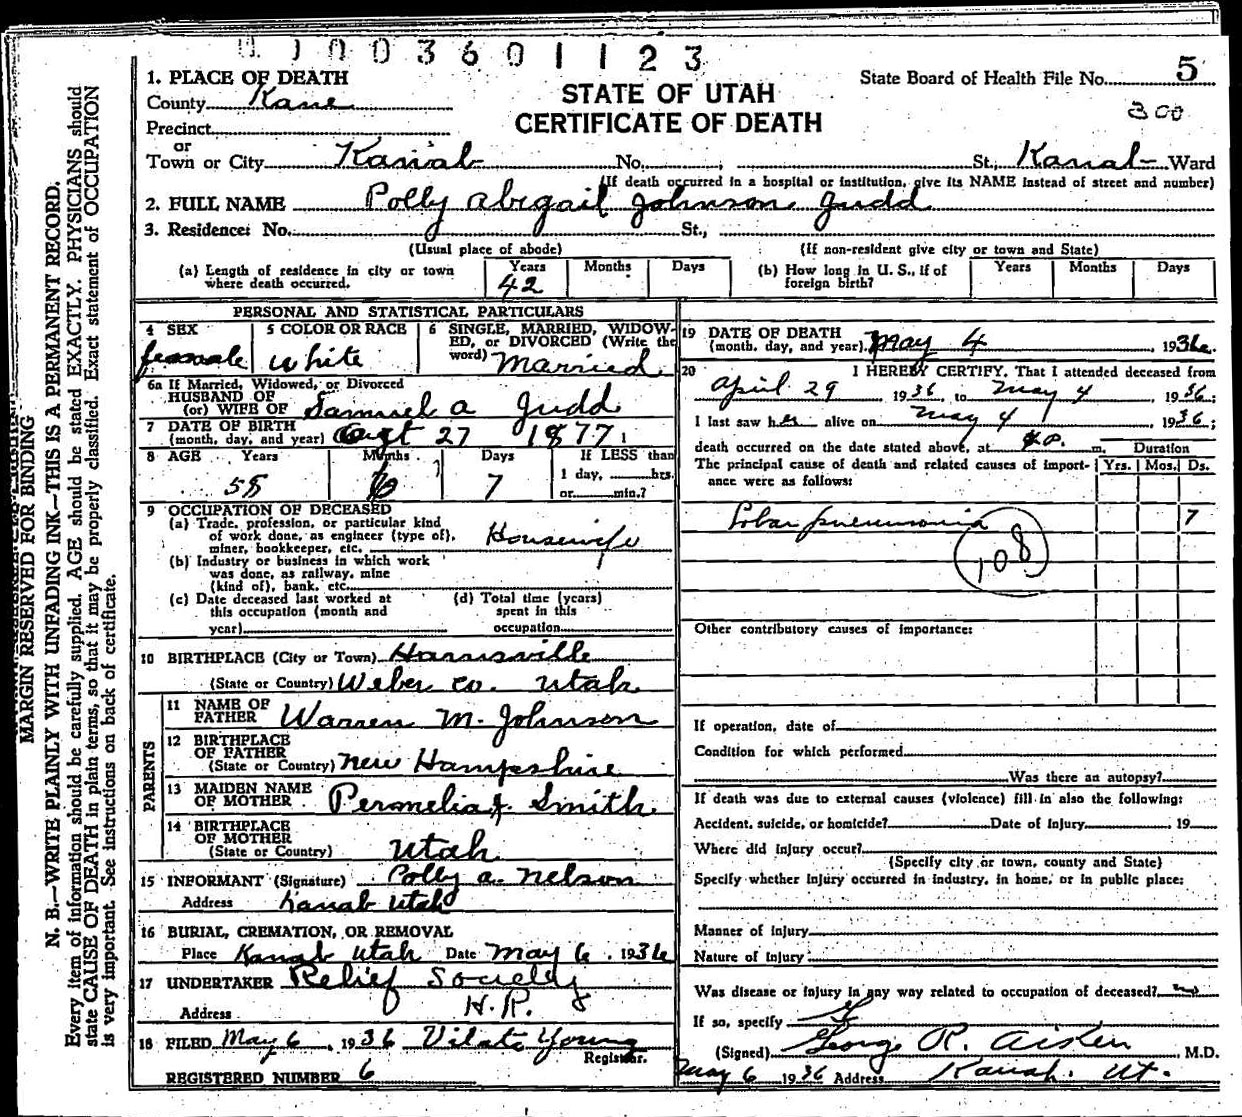 0 1 0 0 3 6 0 1 1 2 3
1. PLACE OF DEATH
County Kane
Precinct
or
Town or City Kanab No. , St., Kanab Ward
STATE OF UTAH
CERTIFICATE OF DEATH
State Board of Health File No. 5
300
(If death occurred in a hospital or institution, give its NAME instead of street and number)
2. FULL NAME Polly Abigail Johnson Judd
3. Residence: No. St.,
(Usual place of abode) (If non-resident give city or town and State)
(a) Length of residence in city or town where death occurred. Years 42 Months Days
(b) How long in U. S., if of foreign birth? Years Months Days
PERSONAL AND STATISTICAL PARTICULARS
4 SEX female
5 COLOR OR RACE White
6 SINGLE, MARRIED, WIDOWED, or DIVORCED (Write the word) Married
6a If Married, Widowed, or Divorced
HUSBAND OF
(or) WIFE OF Samuel A Judd
7 DATE OF BIRTH
(month, day, and year) 27 1877
8 AGE Years 58 Months Days 7 If LESS than
1 day, hrs.
or min.?
9 OCCUPATION OF DECEASED
(a) Trade, profession, or particular kind
of work done, as engineer (type of),
miner, bookkeeper, etc. Housewife
(b) Industry or business in which work
was done, as railway, mine
(kind of), bank, etc.
(c) Date deceased last worked at
this occupation (month and
year)
(d) Total time (years)
spent in this
occupation
10 BIRTHPLACE (City or Town) Harrisville
(State or Country) Weber Co. Utah
PARENTS
11 NAME OF
FATHER Warren M. Johnson
12 BIRTHPLACE
OF FATHER
(State or Country) New Hampshire
13 MAIDEN NAME
OF MOTHER Permelia J. Smith
14 BIRTHPLACE
OF MOTHER
(State or Country) Utah
15 INFORMANT (Signature) Polly A. Nelson
Address Kanab Utah
16 BURIAL, CREMATION, OR REMOVAL
Place Kanab Utah Date May 6, 1936
17 UNDERTAKER Relief Society
Address H.R.
18 FILED May 6, 1936 Vilate Young
Registrar.
REGISTERED NUMBER 6
19 DATE OF DEATH
(month, day, and year) May 4, 1936.
20 I HEREBY CERTIFY, That I attended deceased from
April 29 1936, to May 4, 1936;
I last saw her alive on May 4, 1936;
death occurred on the date stated above, at m. Duration
The principal cause of death and related causes of importance were as follows: Yrs. Mos. Ds.
Lobar pneumonia 7
108
Other contributory causes of importance:
If operation, date of
Condition for which performed
Was there an autopsy?
If death was due to external causes (violence) fill in also the following:
Accident, suicide, or homicide? Date of Injury , 19
Where did injury occur?
(Specify city or town, county and State)
Specify whether injury occurred in industry, in home, or in public place:
Manner of injury
Nature of Injury
Was disease or injury in any way related to occupation of deceased? no
If so, specify
(Signed) George R. Aiken, M.D.
May 6 1936 Address Kanab, Ut.
MARGIN RESERVED FOR BINDING
N. B.—WRITE PLAINLY WITH UNFADING INK—THIS IS A PERMANENT RECORD.
Every item of information should be carefully supplied. AGE should be stated EXACTLY. PHYSICIANS should
state CAUSE OF DEATH in plain terms, so that it may be properly classified. Exact statement of OCCUPATION
is very important. See instructions on back of certificate.